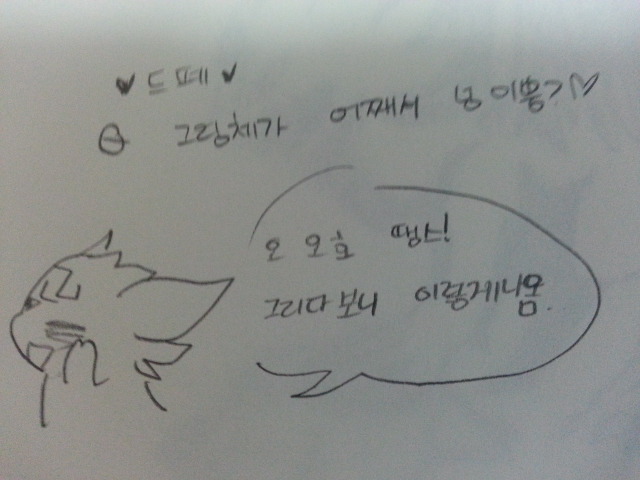 ♥드떼♥
그림체가 어째서 넘 이쁨?♡
오 오효 땡스!
그리다보니 이렇게나옴.